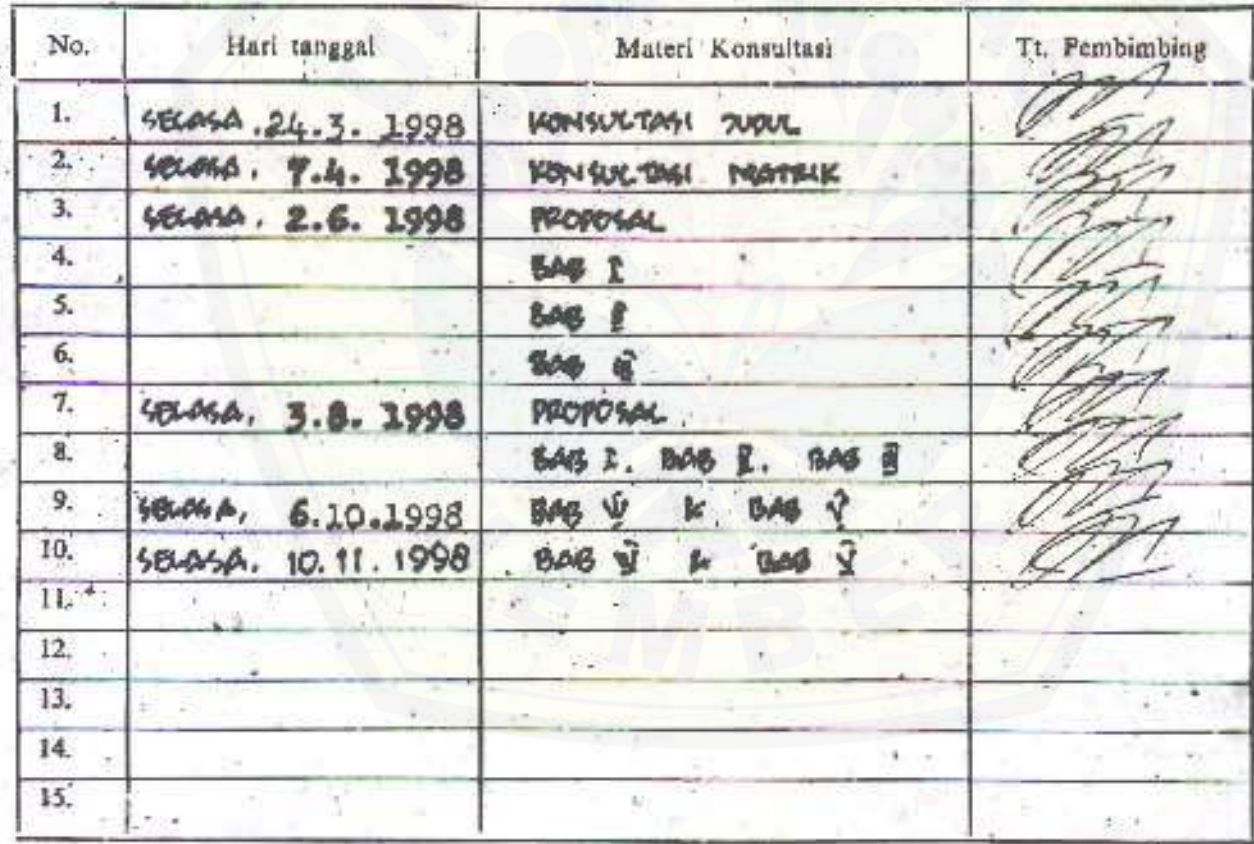 No. Hari tanggal Materi Konsultasi Tt. Pembimbing
1. SELASA. 24.3. 1998 KONSULTASI JUDUL
2. SELASA. 7.4. 1998 KONSULTASI MATRIK
3. SELASA. 2.6. 1998 PROPOSAL
4. BAB I
5. BAB II
6. BAB III
7. SELASA, 3.8. 1998 PROPOSAL
8. BAB I. BAB II. BAB III
9. SELASA, 6.10.1998 BAB IV & BAB V
10. SELASA. 10.11.1998 BAB IV & BAB V
11.
12.
13.
14.
15.